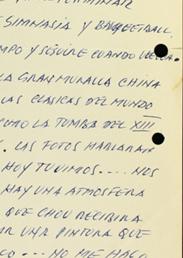 GIMNASIA Y BASQUETBALL,
MPO Y SEGUIRÉ CUANDO
LA GRAN MURALLA CHINA
LAS CLASICAS DEL MUNDO
COMO LA TUMBA DEL XIII
. LAS FOTOS HABLARAN
HOY TUVIMOS.... NOS
HAY UNA ATMOSFERA
QUE CHOU RECIBIRA
UNA PINTURA QUE
CO... NO ME HAGO